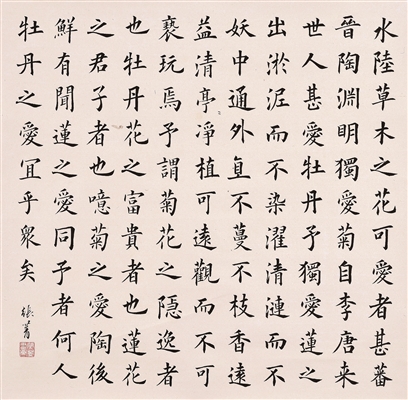 水陸草木之花可愛者甚蕃
晉陶淵明獨愛菊自李唐来
世人甚愛牡丹予獨愛蓮之
出淤泥而不染濯清漣而不
妖中通外直不蔓不枝香遠
益清亭淨植可遠觀而不可
褻玩焉予謂菊花之隱逸者
也牡丹花之富貴者也蓮花
之君子者也噫菊之愛陶後
鮮有聞蓮之愛同予者何人
牡丹之愛宜乎衆矣